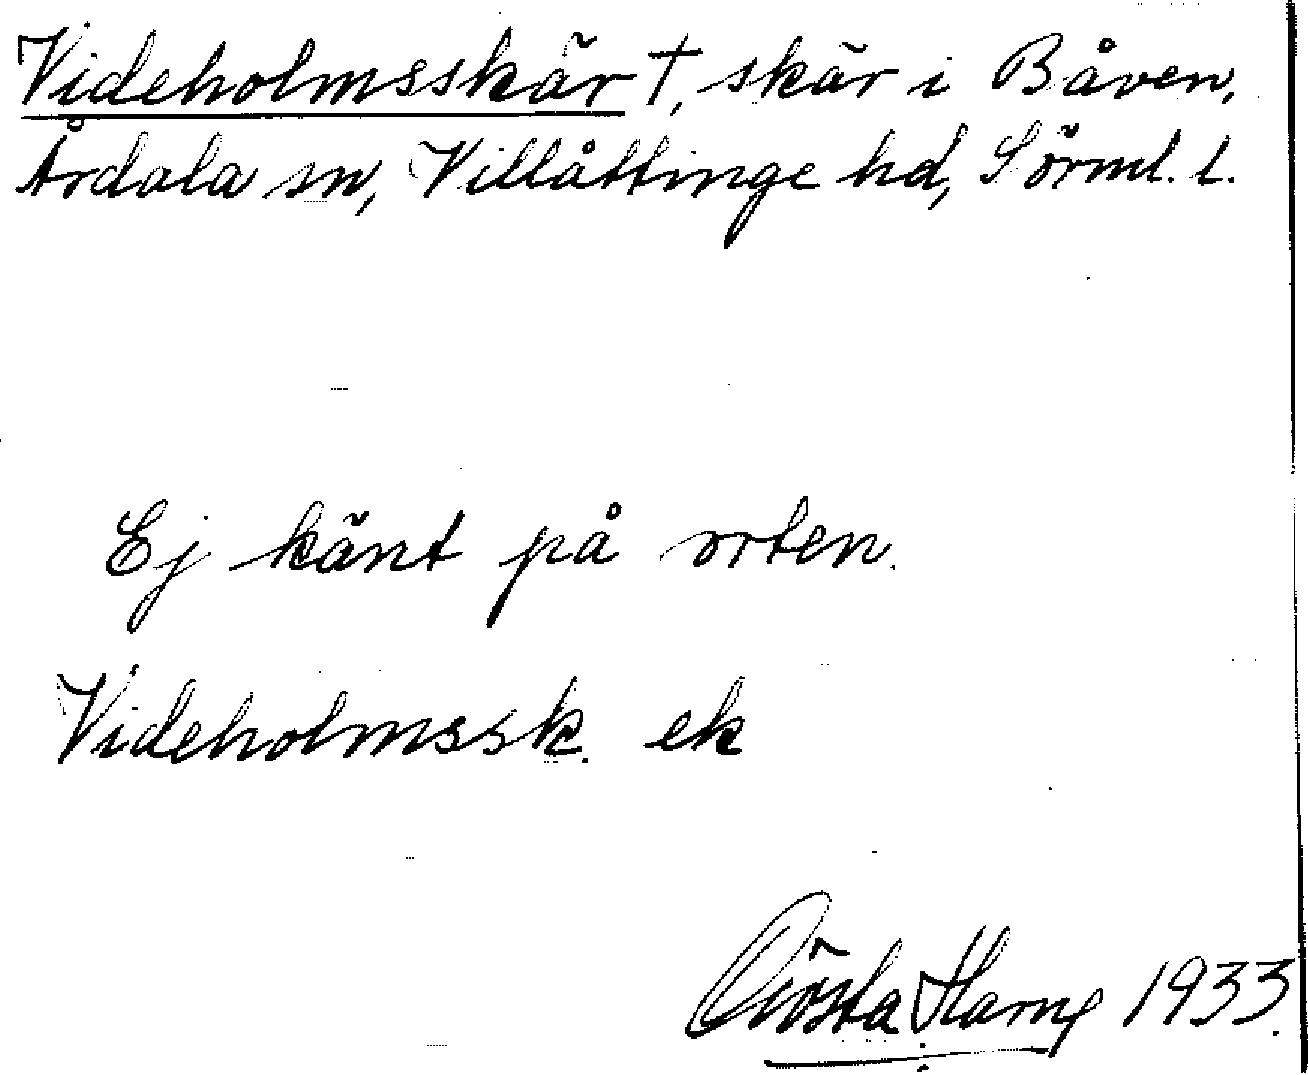 Videholmsskär †, skär i Båven,
Årdala sn, Villåttinge hd, Sörml. l.
Ej känt på orten.
Videholmssk. ek
Gösta Harng 1933.